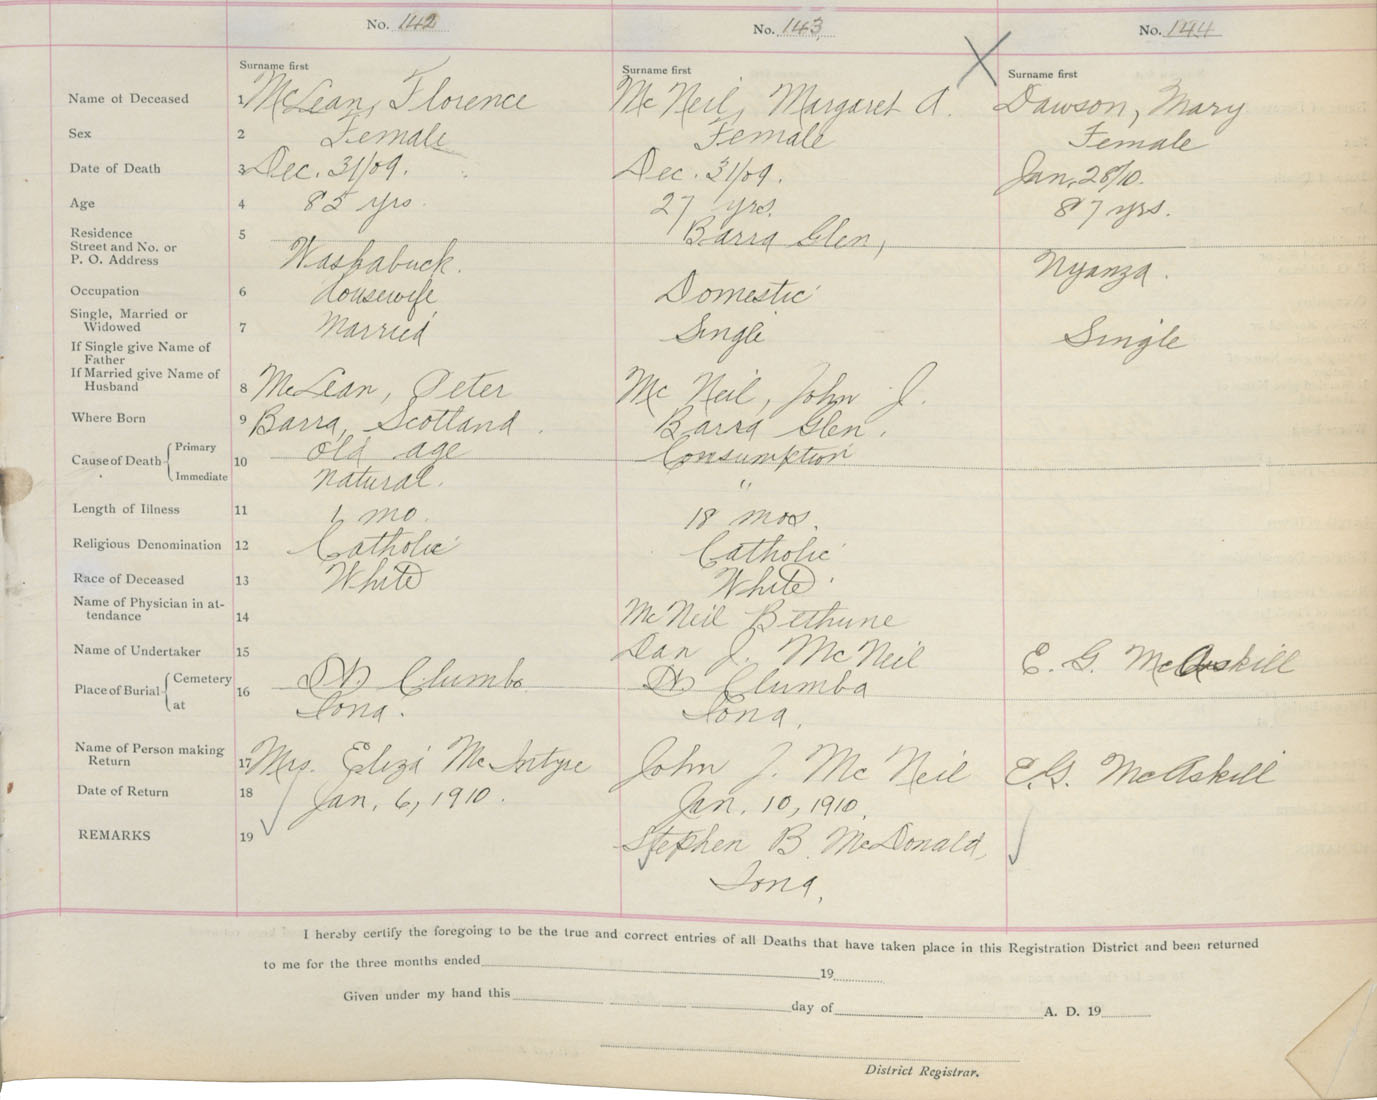 No. 142 No. 143 No. 144
Surname first Surname first Surname first
Name of Deceased 1 McLean, Florence McNeil, Margaret A. Dawson, Mary
Sex 2 Female Female Female
Date of Death 3 Dec. 31/09. Dec. 31/09. Jan. 28/10.
Age 4 85 yrs. 27 yrs. 87 yrs.
Residence
Street and No. or
P. O. Address 5 Washabuck. Barra Glen, Nyanza.
Occupation 6 Housewife Domestic
Single, Married or
Widowed 7 Married Single Single
If Single give Name of
Father
If Married give Name of
Husband 8 McLean, Peter McNeil, John J.
Where Born 9 Barra, Scotland. Barra Glen.
Cause of Death Primary 10 old age Consumption
Immediate natural. "
Length of Illness 11 1 mo. 18 mos.
Religious Denomination 12 Catholic Catholic
Race of Deceased 13 White White
Name of Physician in at-
tendance 14 McNeil Bethune
Name of Undertaker 15 Dan J. McNeil E. G. McAskill
Place of Burial Cemetery 16 St. Clumba St. Clumba
at Iona. Iona.
Name of Person making
Return 17 Mrs. Eliza McIntyre John J. McNeil E.G. McAskill
Date of Return 18 Jan. 6, 1910. Jan. 10, 1910.
REMARKS 19 Stephen B. McDonald,
Iona.
I hereby certify the foregoing to be the true and correct entries of all Deaths that have taken place in this Registration District and been returned
to me for the three months ended 19
Given under my hand this day of A. D. 19
District Registrar.